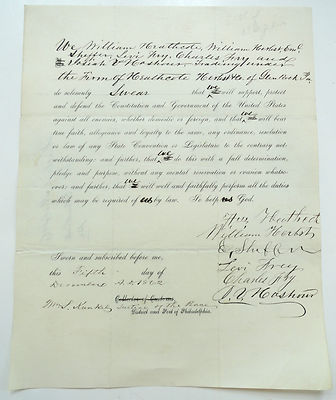 We William Heathcote, William Herbst, Eml
Sheffer, Levi Fry, Charles Fry and
Josiah V Hoshour Trading under
the Firm of Heathcote Herbst & Co. of Glen Rock Pa
do solemnly Swear that we will support, protect
and defend the Constitution and Government of the United States
against all enemies, whether domestic or foreign, and that we will bear
true faith, allegiance and loyalty to the same, any ordinance, resolution
or law of any State Convention or Legislature to the contrary not-
withstanding: and further, that we do this with a full determination,
pledge and purpose, without any mental reservation or evasion whatso-
ever: and further, that we will well and faithfully perform all the duties
which may be required of us by law. So help us God.
Wm Heathcote
William Herbst
E Sheffer
Levi Fry
Charles Fry
J. V. Hoshour
Sworn and subscribed before me,
this Fifth day of
December A.D. 1862
Collector of Customs
Justice of the Peace
District and Port of Philadelphia.